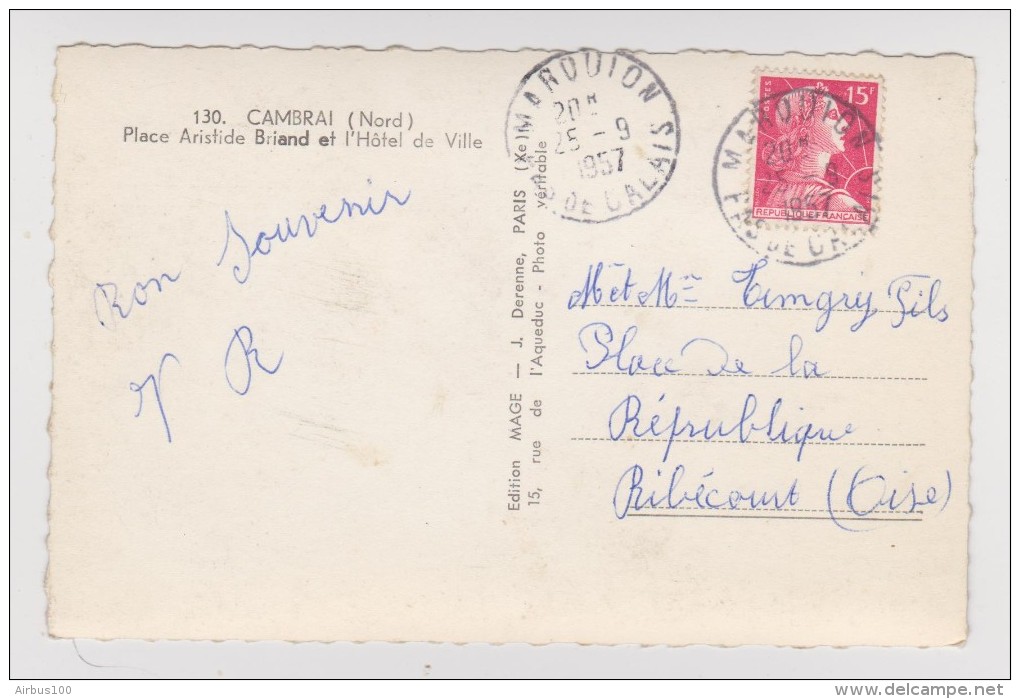 130. CAMBRAI (Nord)
Place Aristide Briand et l'Hôtel de Ville
Bon Souvenir
R
Edition MAGE — J. Derenne, PARIS (Xe)
15, rue de l'Aqueduc - Photo véritable
MARQUION
20H
25 - 9
1957
PAS DE CALAIS
POSTES
15F
REPUBLIQUE FRANÇAISE
MARQUION
20H
25 - 9
1957
PAS DE CALAIS
M et Mme Temgry Fils
Place De la
République
Ribécourt (Oise)
Airbus100
www.delcampe.net